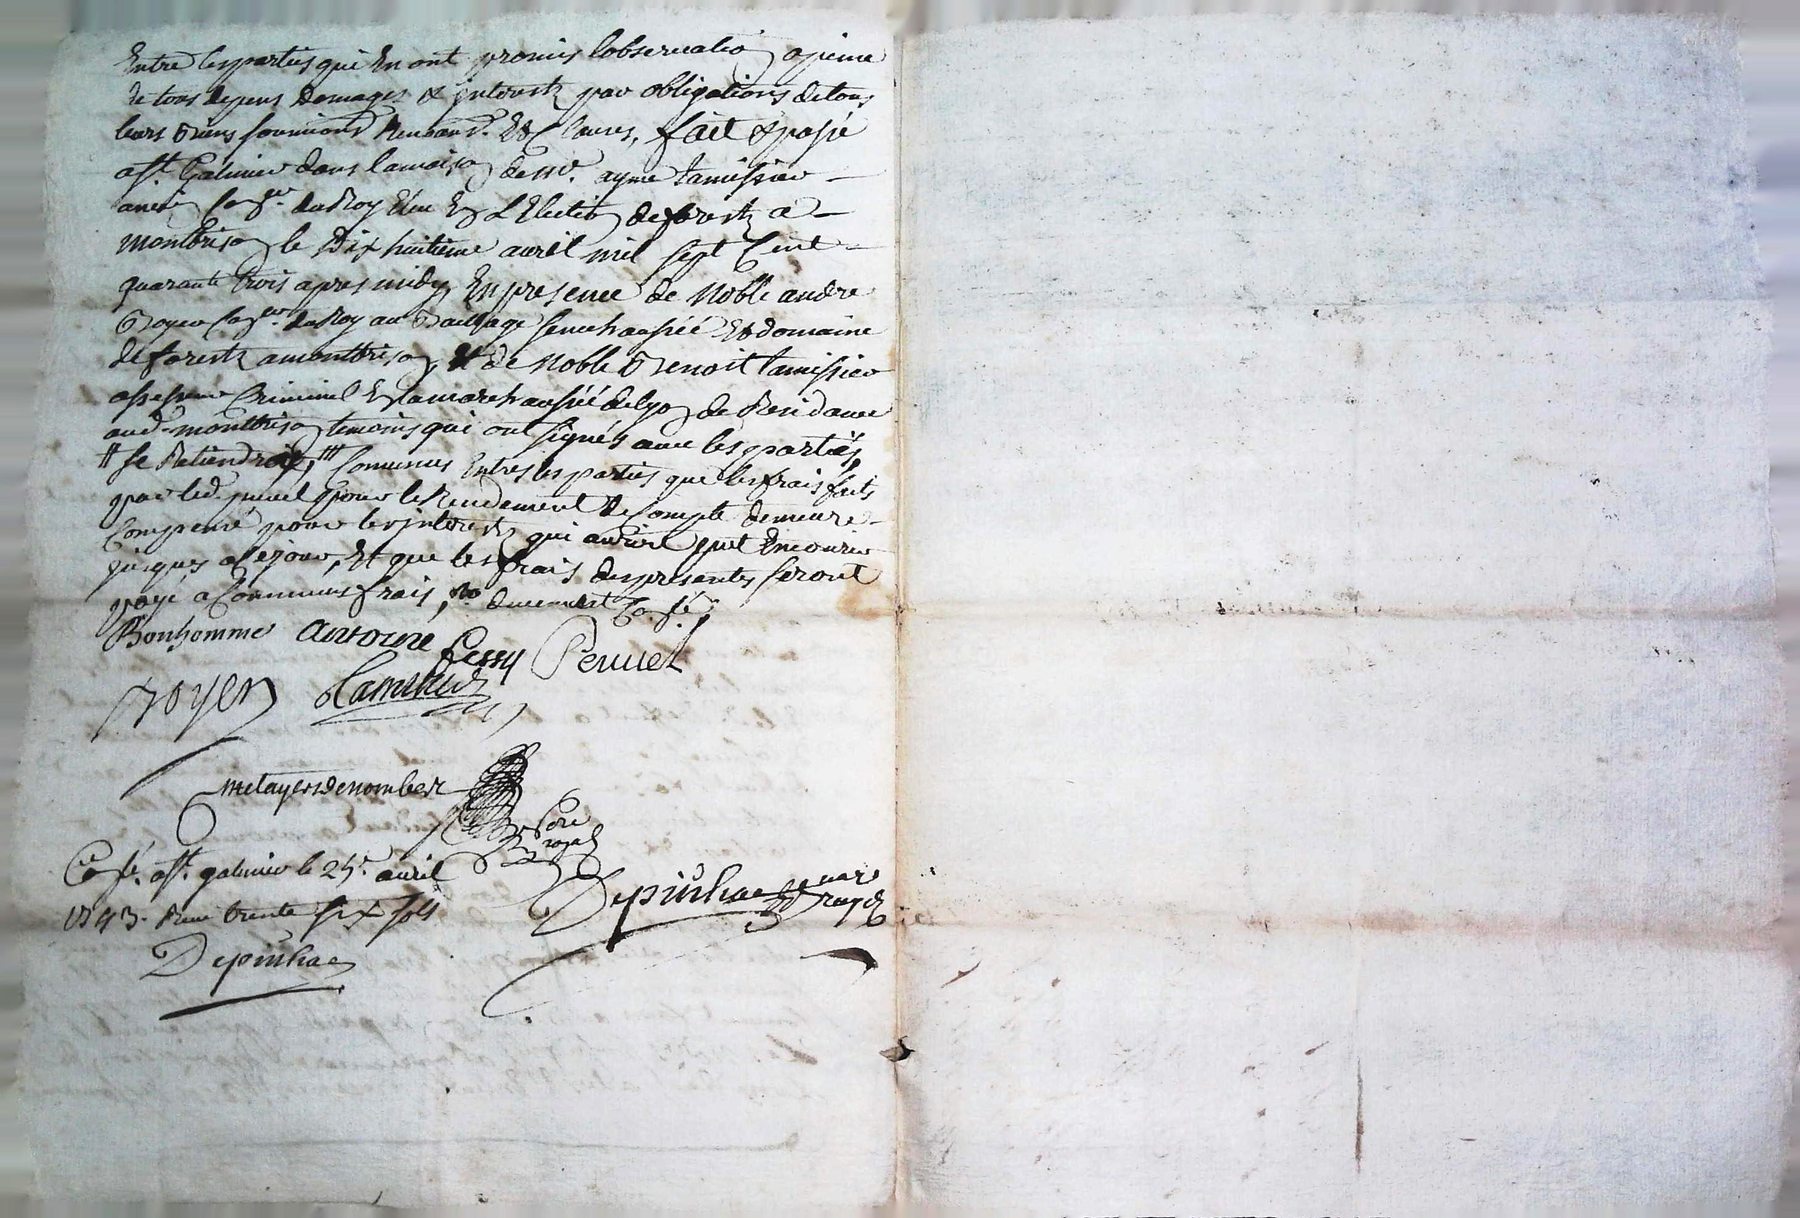 Entre les parties qui En ont promis lobservatio͠ a peine
de tous depens Domages & Interestz par obligations de tous
leurs Biens soumions Renaon.ᵒⁿ Et Clauses, fait & passé
a Sᵗ Galmier dans la maiso͠ de mᵉ. ayme tamissier
ancie͠ Co͠ser. du Roy Eleu E͠ L'Electio͠ de forestz a
montbriso͠ le Dix huitieme auril mil sept Cent
quarante trois apres midy, En presence de Noble andre
Boyer Co͠ser. du Roy au Bailliage senechaussée Et domaine
de forestz a montbriso͠, Et de Noble Benoist tamissier
assesseur Criminel E͠ la marechaussée de lyo͠ de Residance
aud. montbriso͠ temoins qui ont signés auec les parties,
# se Retiendroit, ### Conuenus Entre les parties que les frais faits
par led. peruel pour le Rendement de Compte demeure
Compensé pour les interestz qui auroit put Encourir
jusques a ce jour, Et que les frais des presantes seront
payé a Communs frais,
Bonhomme antoine Fessy Peruel
Boyer Tamissier
metayer denombert
Co͠lé. a Sᵗ. galmier le 25ᵉ. auril
1743. Receu trente six sols
Depinhac
Depinhac nore royal